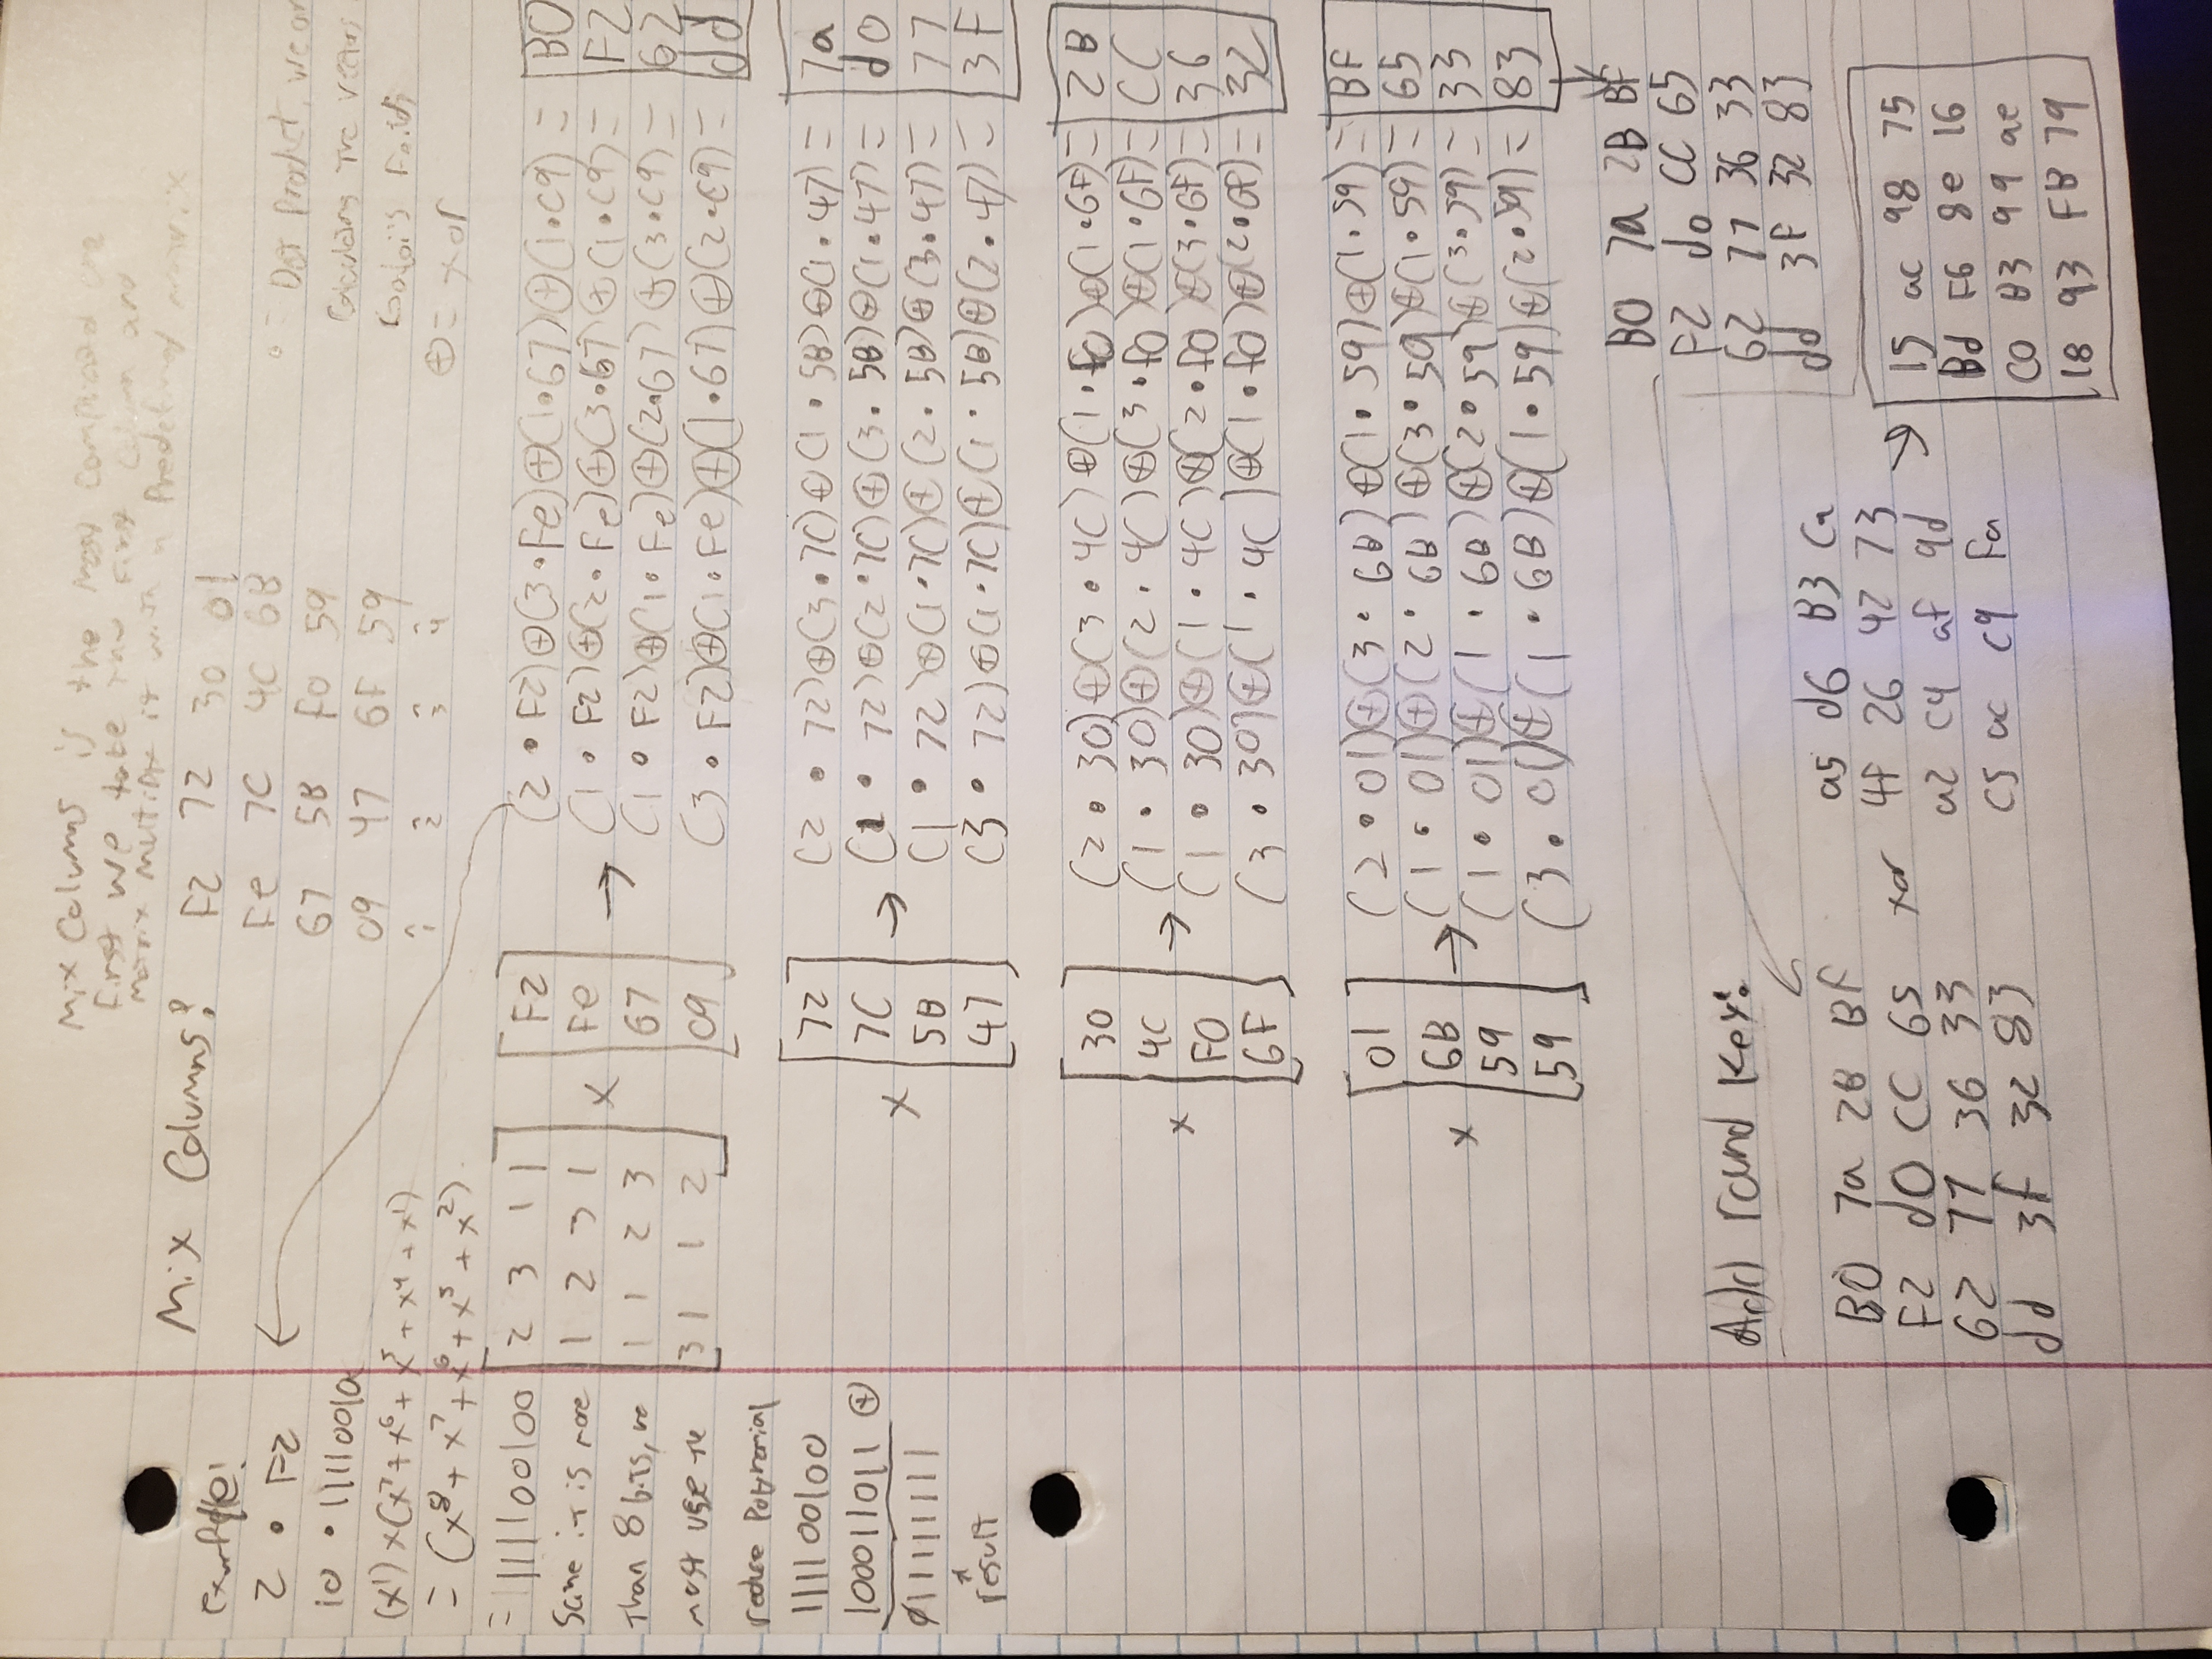 Mix Columns is the most complicated one
First we take the First Column and
Matrix Multiply it with a Predefined matrix
Mix Columns:
F2 72 30 01
Fe 7C 4C 6B
67 5B F0 59
09 47 6F 59
^ ^ ^ ^
1 2 3 4
• = Dot Product, we are
Calculating The vectors
Galoi's Feilds
⊕ = xor
example:
2 • F2
10 • 11110010
(x¹) × (x⁷ + x⁶ + x⁵ + x⁴ + x¹)
= (x⁸ + x⁷ + x⁶ + x⁵ + x²)
= 111100100
Since it is more
Than 8 bits, we
must use the
reduce Polynomial
111100100
100011011 ⊕
011111111
^
result
[2 3 1 1
1 2 3 1
1 1 2 3
3 1 1 2]
×
[F2
Fe
67
C9]
→
(2 • F2)⊕(3•Fe)⊕(1•67)⊕(1•C9) = B0
(1 • F2)⊕(2•Fe)⊕(3•67)⊕(1•C9) = F2
(1 • F2)⊕(1•Fe)⊕(2•67)⊕(3•C9) = 62
(3 • F2)⊕(1•Fe)⊕(1•67)⊕(2•C9) = dd
×
[72
7C
5B
47]
→
(2 • 72)⊕(3•7C)⊕(1•5B)⊕(1•47) = 7a
(1 • 72)⊕(2•7C)⊕(3•5B)⊕(1•47) = d0
(1 • 72)⊕(1•7C)⊕(2•5B)⊕(3•47) = 77
(3 • 72)⊕(1•7C)⊕(1•5B)⊕(2•47) = 3F
×
[30
4C
F0
6F]
→
(2 • 30)⊕(3•4C)⊕(1•F0)⊕(1•6F) = 2B
(1 • 30)⊕(2•4C)⊕(3•F0)⊕(1•6F) = CC
(1 • 30)⊕(1•4C)⊕(2•F0)⊕(3•6F) = 36
(3 • 30)⊕(1•4C)⊕(1•F0)⊕(2•6F) = 32
×
[01
6B
59
59]
→
(2 • 01)⊕(3•6B)⊕(1•59)⊕(1•59) = BF
(1 • 01)⊕(2•6B)⊕(3•59)⊕(1•59) = 65
(1 • 01)⊕(1•6B)⊕(2•59)⊕(3•59) = 33
(3 • 01)⊕(1•6B)⊕(1•59)⊕(2•59) = 83
B0 7a 2B BF
F2 d0 CC 65
62 77 36 33
dd 3F 32 83
Add round Key:
B0 7a 2B BF
F2 d0 CC 65
62 77 36 33
dd 3F 32 83
xor
a5 d6 B3 Ca
4f 26 42 73
a2 C4 af 9d
C5 ac C9 Fa
→
15 ac 98 75
Bd F6 8e 16
C0 B3 99 ae
18 93 FB 79